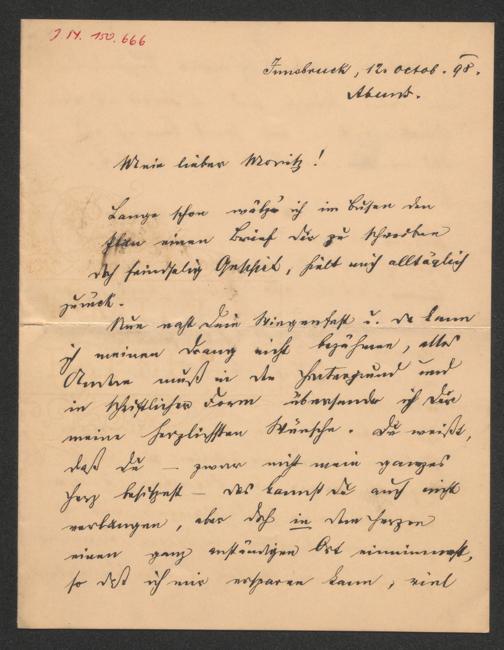 J.N. 150.666
Innsbruck, 12. Octob. 98.
Abends.
Mein lieber Moritz!
Lange schon wälze ich im Busen den
Plan einen Brief dir zu schreiben
doch feindselig Geschick, hielt mich alltäglich
zurück.
Nun naht dein Wiegenfest u. da kann
ich meinen Drang nicht bezähmen, alles
Andre muß in den Hintergrund und
in schriftlicher Form übersende ich Dir
meine herzlichsten Wünsche. Du weißt,
daß Du – zwar nicht mein ganzes
Herz besitzest – das kannst Du auch nicht
verlangen, aber doch in dem Herzen
einen ganz anständigen Ort einnimmst,
so daß ich mir ersparen kann, viel